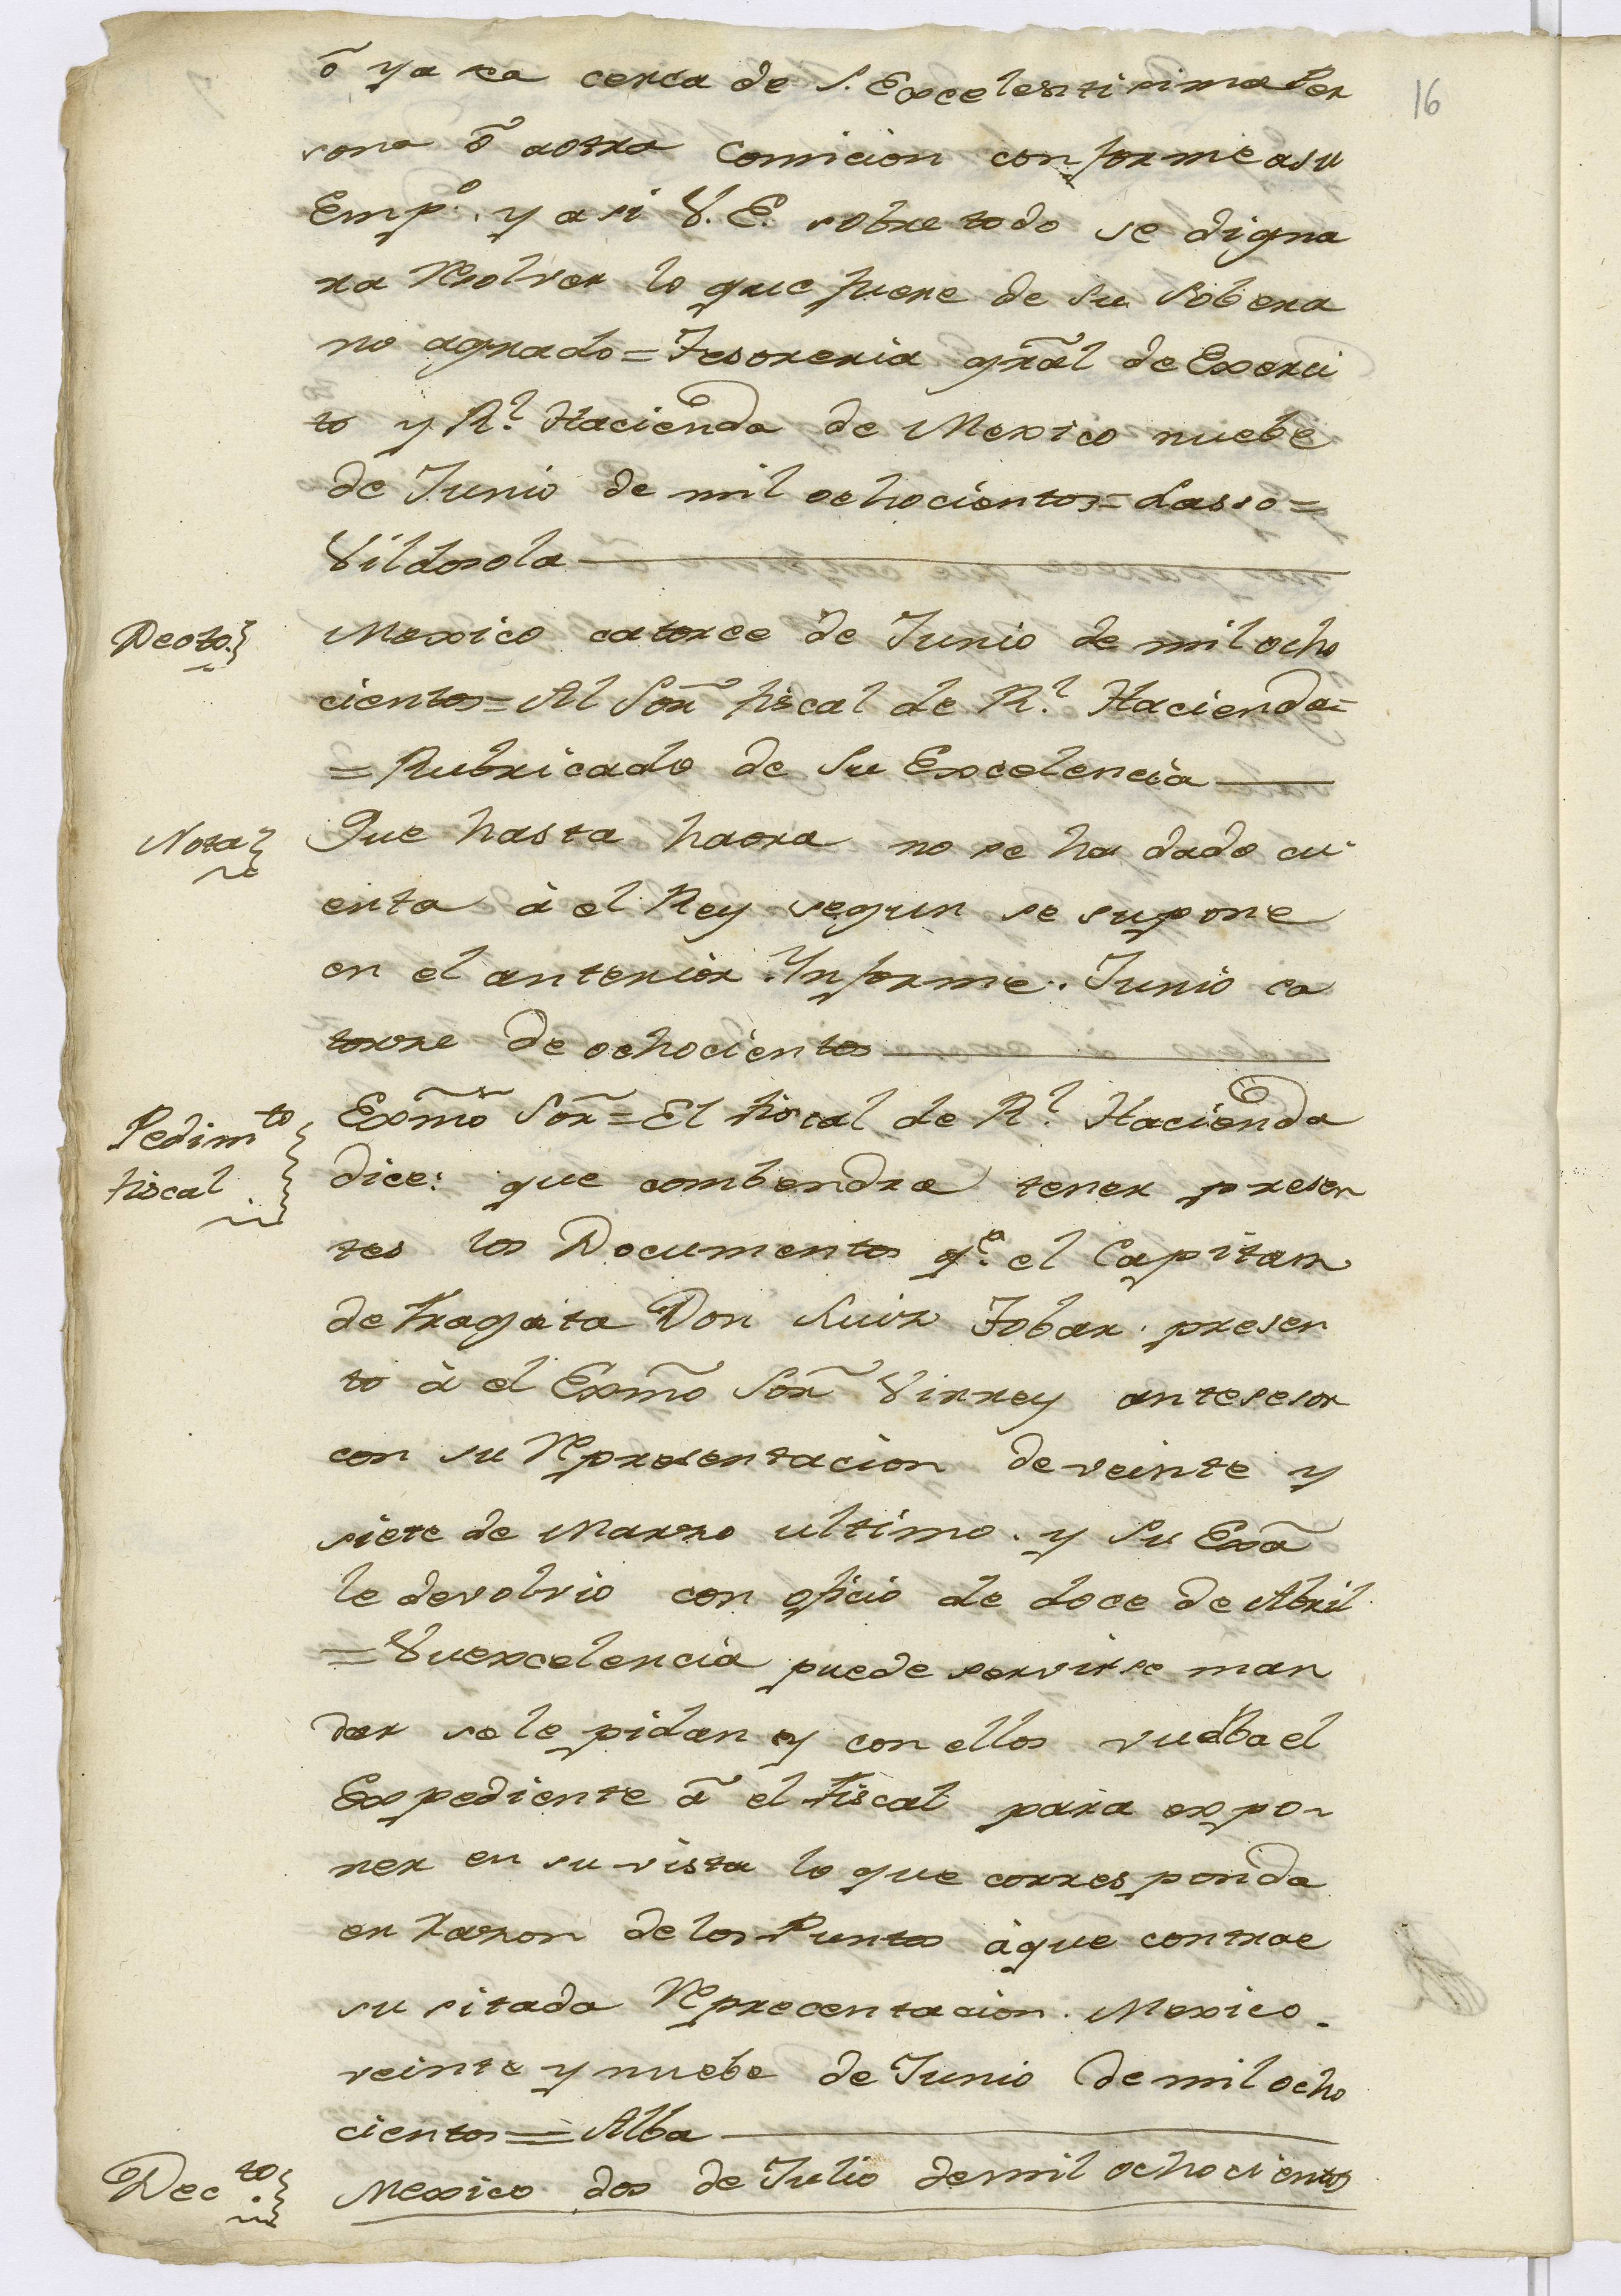 16
ô ya sea cerca de S. Excelentisima Per
sona ô aotra Comicion conforme asu
Emp.º y asi V. E. sobre todo se digna
ra Resolver lo que fuere de su Sobera
no agrado = Tesoreria grãl de Exerci
to y R.l Hacienda de Mexico nuebe
de Junio de mil ochocientos = Lasso =
Vildosola
Decto.
Mexico catorce de Junio de mil ocho
cientos = Al Sor̃ fiscal de R.l Hacienda =
= Rubricado de Su Excelencia
Nota
Que hasta haora no se ha dado cu
enta à el Rey segun se supone
en el anterior Informe. Junio ca
torze de ochocientos
Pedim.to
fiscal
Exm̃o Sor̃ = El fiscal de R.l Hacienda
dice: que combendra tener presen
tes los Documentos q.e el Capitan
de fragata Don Luiz Tobar presen
to à el Exm̃o Sor̃ Virrey antesesor
con su Representacion de veinte y
siete de Marzo ultimo. y Su Exã
le devolvio con oficio de doce de Abril
= Vuexcelencia puede servirse man
dar se le pidan y con ellos vuelba el
Expediente â el fiscal para expo-
ner en su vista lo que corresponda
en razon de los Puntos àque contrae
su sitada Reprecentacion. Mexico
veinte y nuebe de Junio de mil ocho
cientos = Alba
Dec.to
Mexico dos de Julio de mil ochocientos